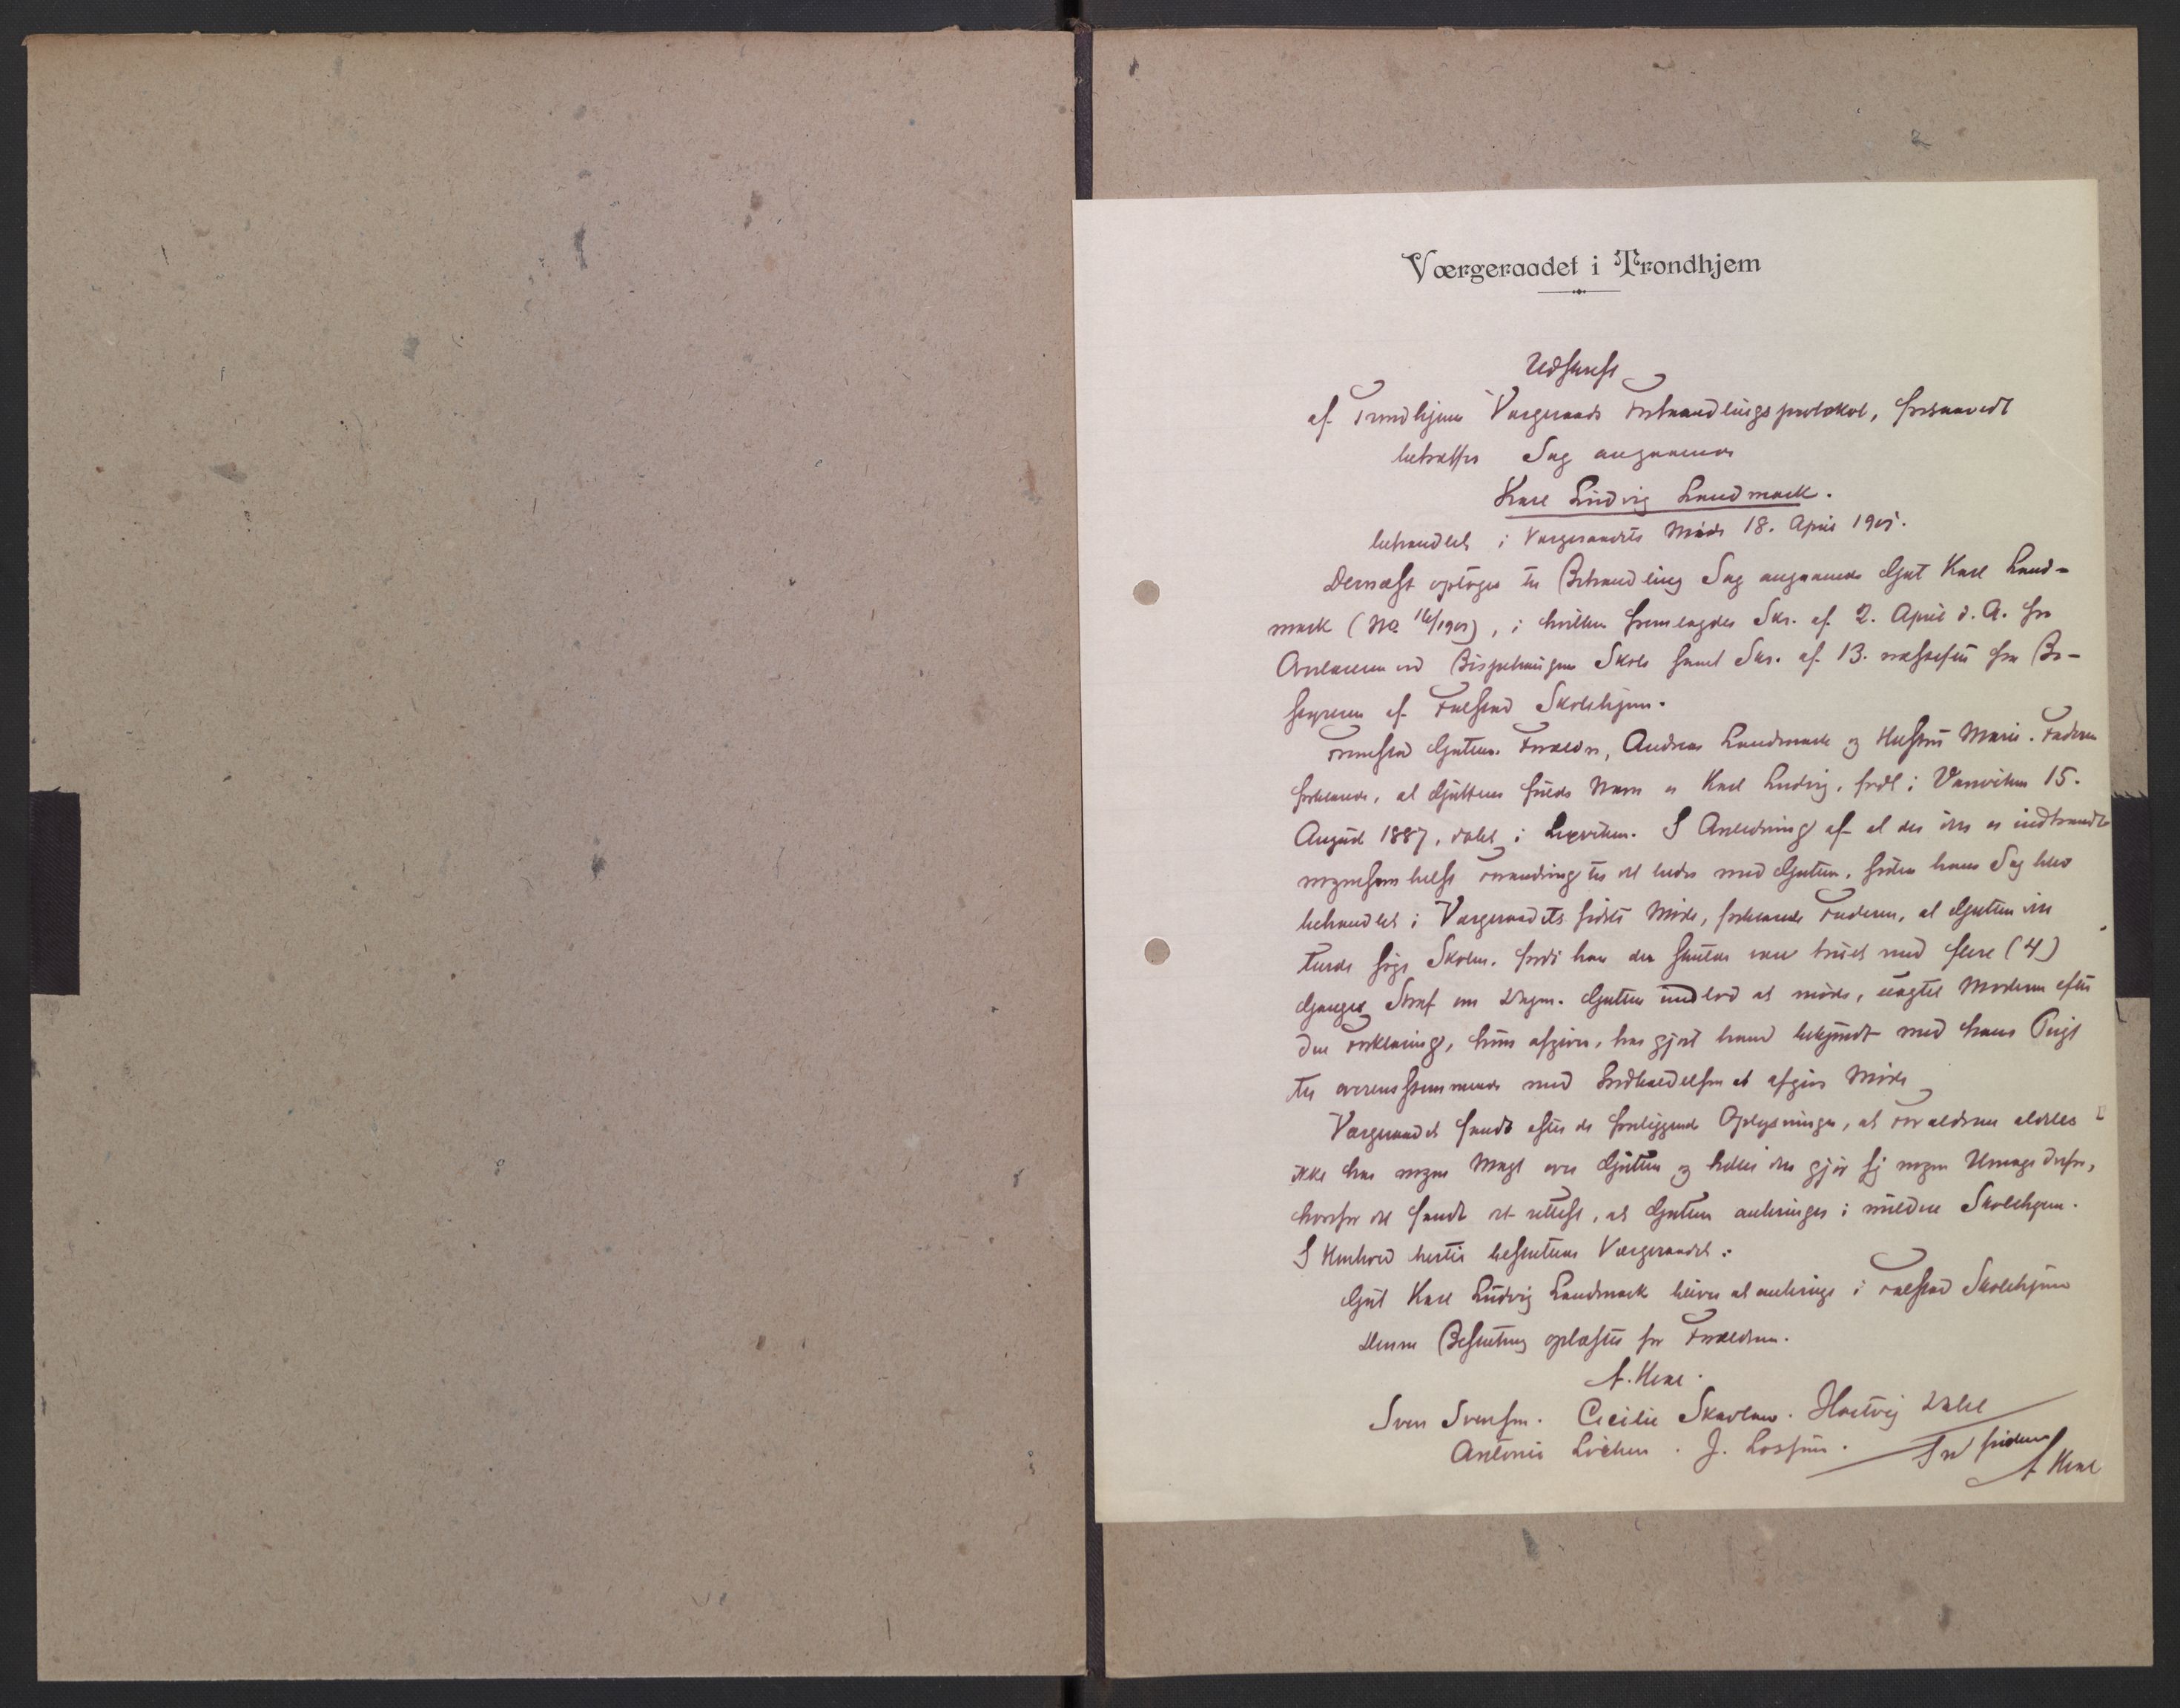 Værgeraadet i Trondhjem
Udskrift
af Trondhjems Værgeraads Forhandlingsprotokol, forsaavidt
betræffer Sag angaaende
Karl Ludvig Landmark.
behandlet i Værgeraadets Møde 18. April 1901.
Dernæst optoges til Behandling Sag angaaende Gut Karl Land-
mark (No 16/1901), i hvilken fremlagdes Skr. af 2. April d. A. fra
Overlæreren ved Bispehaugens Skole samt Skr. af 13. næstefter fra Be-
styreren af Falstad Skolehjem.
Fremstod Guttens Forældre, Andreas Landmark og Hustru Marie. Faderen
forklarede, at Guttens fulde Navn er Karl Ludvig, født i Vanviken 15.
August 1887, døbt i Lexviken. I Anledning af at der ikke er indtraadt
nogensomhelst Forandring til det bedre med Gutten, siden hans Sag blev
behandlet i Værgeraadets sidste Møde, forklarede Faderen, at Gutten ikke
turde søge Skolen, fordi han der skulde være truet med flere (4)
Ganges Straf om Dagen. Gutten undlod at møde, uagtet Moderen efter
den Forklaring, hun afgiver, har gjort ham bekjendt med hans Pligt
til overensstemmende med Indkaldelsen at afgive Møde
Værgeraadet fandt efter de foreliggende Oplysninger, at Forældrene aldeles
ikke har nogen Magt over Gutten og heller ikke gjør sig nogen Umage derfor,
hvorfor det fandt det rettest, at Gutten anbringes i mildere Skolehjem.
I Henhold hertil besluttede Værgeraadet:
Gut Karl Ludvig Landmark bliver at anbringe i Falstad Skolehjem
Denne Beslutning oplæstes for Forældrene.
Sven Svensen. Cecilie Skavlan. Hartvig Dahl
Antonie Løchen. J.